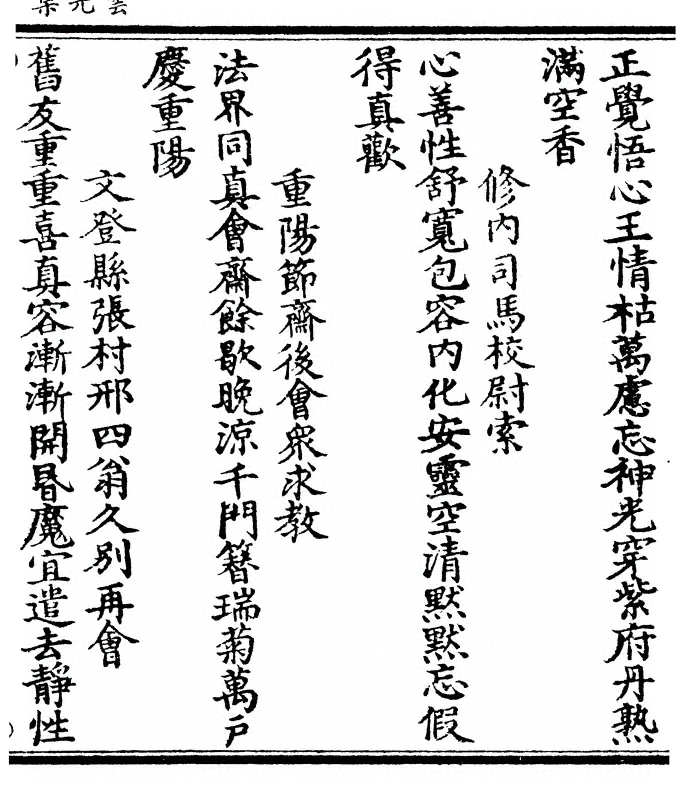 正覺悟心王情枯萬慮忘神光穿紫府丹熟
滿空香
修内司馬校尉索
心善性舒寬包容内化安靈空清默默忘假
得真歡
重陽節齋後會眾求教
法界同真會齋餘歇晚涼千門簪瑞菊萬戶
慶重陽
文登縣張村邢四翁久別再會
舊友重重喜真容漸漸開昬魔宜遣去靜性